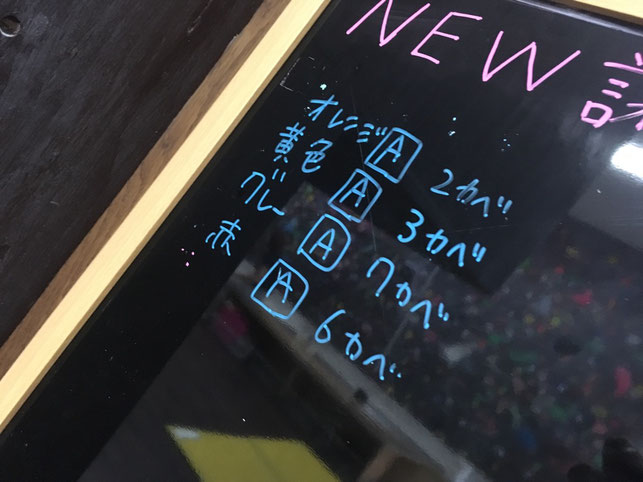 NEW 課
オレンジ A 2カベ
黄色 A 3カベ
グレー A 7カベ
赤 A 6カベ